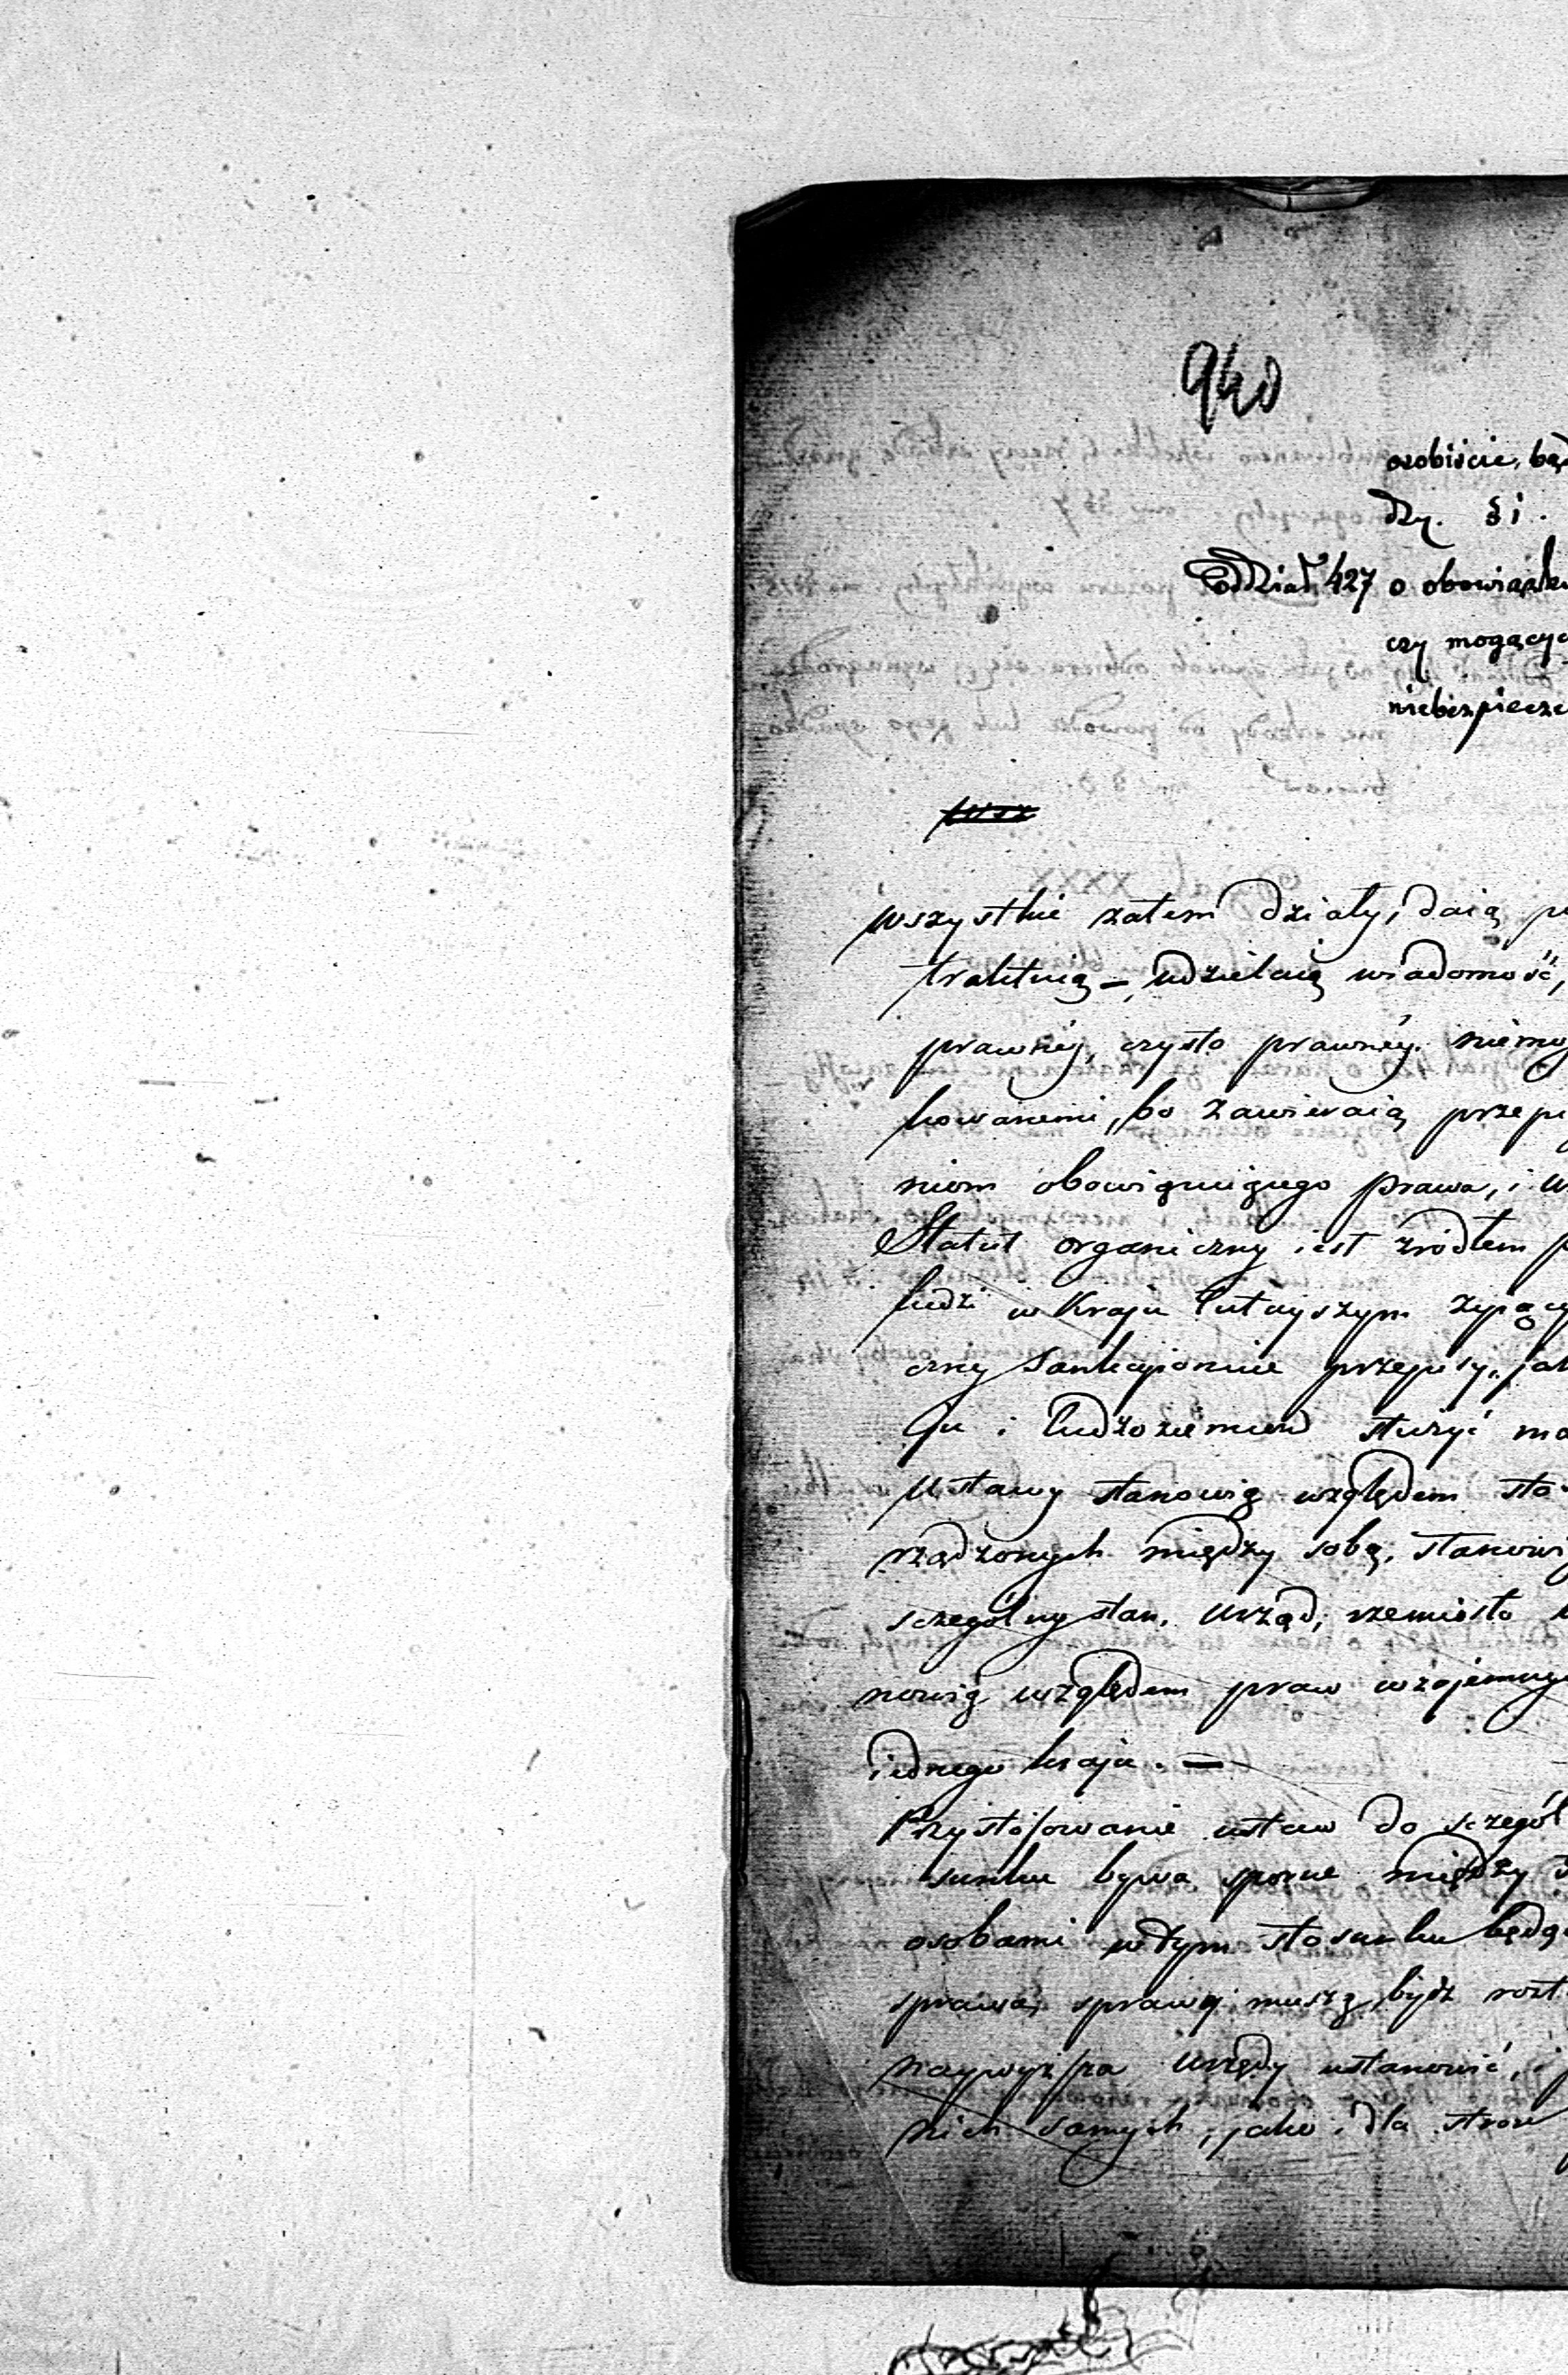 940
osobiście, bą
dzy. § 1.
Oddział 427 o obowiązk
czy mogącyc
niebezpiecze
wszystkie zatem działy, daią
traktuią —, udzielaią wiadomość,
prawnéy, czysto prawnéy. niemo
kowanemi, bo zawieraią przepi
niom obowięzuiącego prawa, i
Statut organiczny iest źródłem p
ludzi w Kraju tutayszym żyjący
czny Sankcjonuie przepisy, jak
ju i Cudzoziemców służyć ma
Ustawy stanowią względem sto
rządzonych między sobą, stanowi
sczególny stan, Urząd, rzemiosło
nowią względem praw wzajemnyc
iednego kraju. —
Przystósowanie ustaw do sczegól
sunku bywa sporne między
osobami w tym stosunku będąc
sprawa, sprawy muszą bydź rozt
naywyższa Urzędy ustanowić, i
nich samych, jako i dla stron